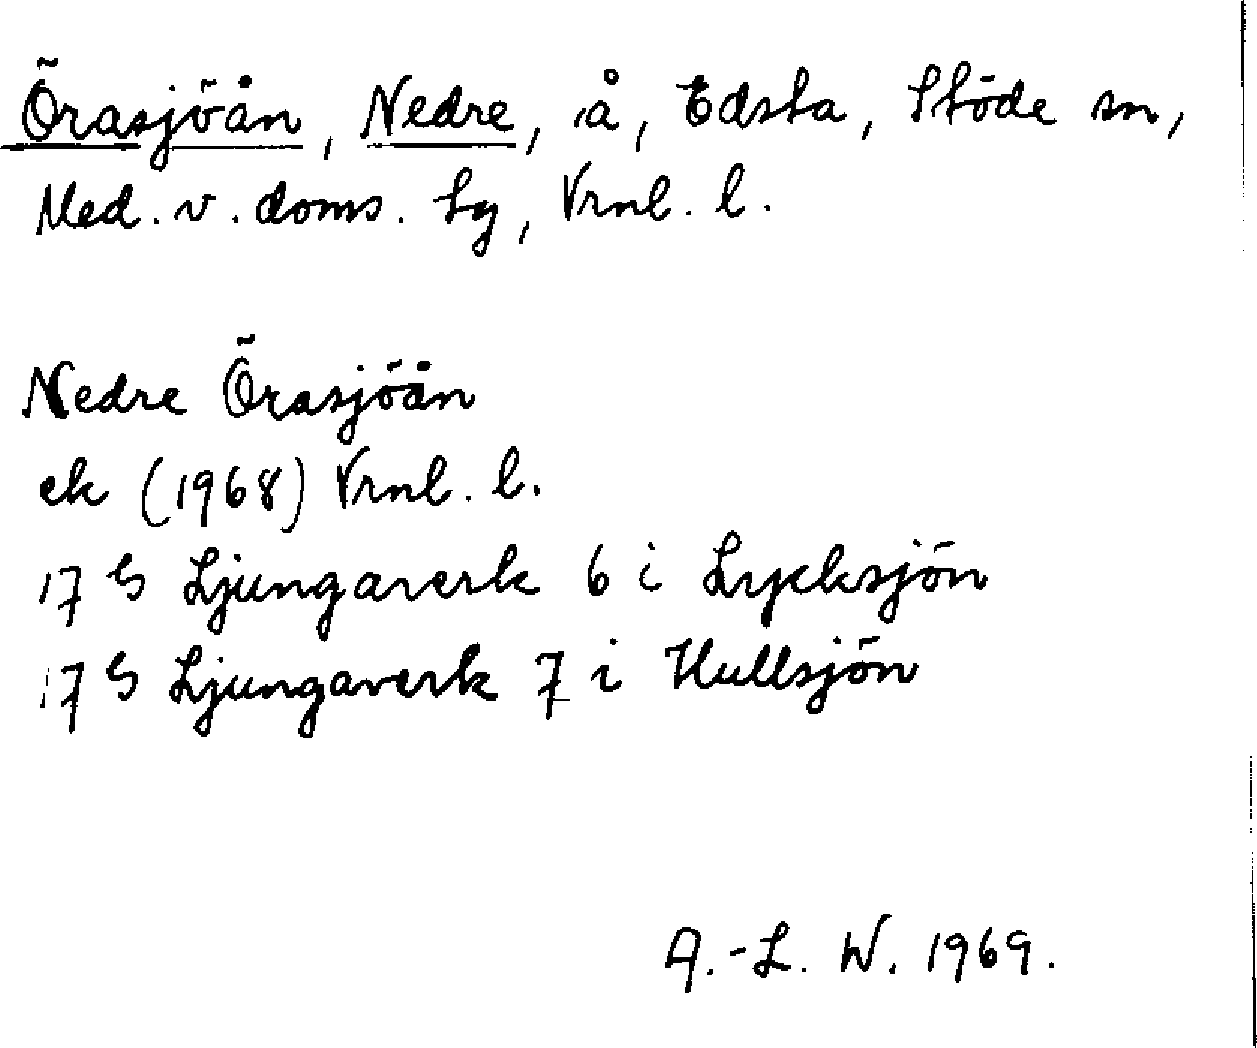 Örasjöån, Nedre, å, Edsta, Stöde sn,
Med. v. doms. hg, Vrnl. l.
Nedre Örasjöån
ek (1968) Vrnl. l.
17 G Ljungaverk 6 i Lycksjön
17 G Ljungaverk 7 i Hullsjön
A.-L. W. 1969.